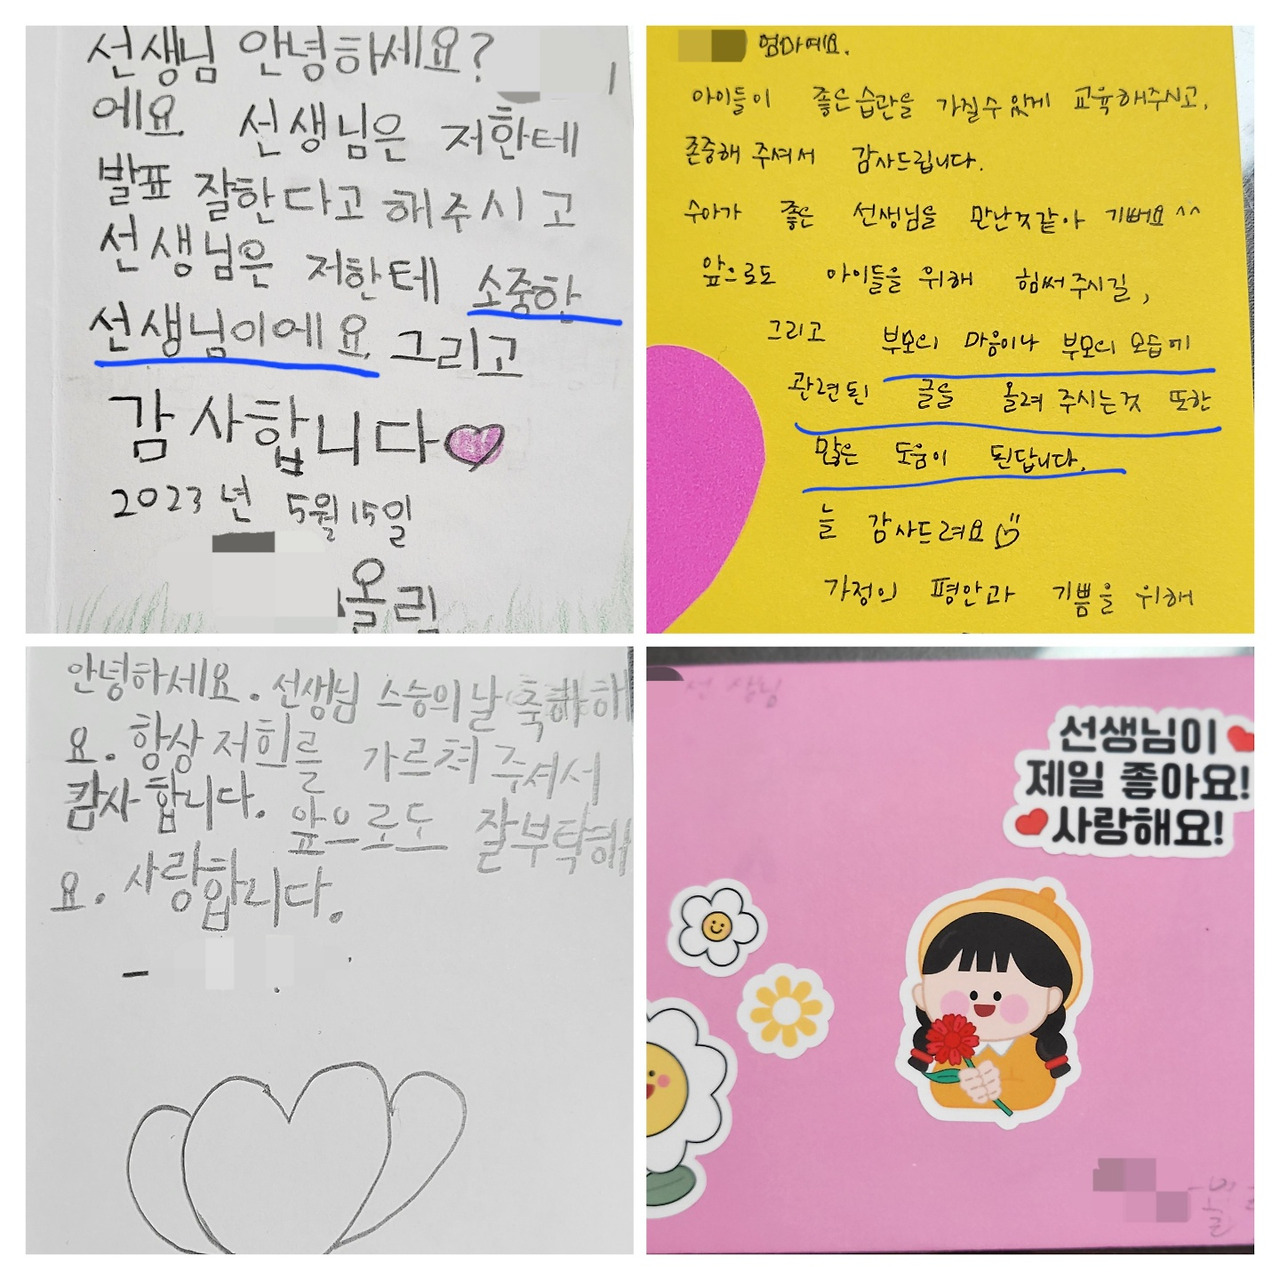 선생님 안녕하세요?
에요 선생님은 저한테
발표 잘한다고 해주시고
선생님은 저한테 소중한
선생님이에요 그리고
감사합니다
2023년 5월 15일
올림
엄마예요.
아이들이 좋은습관을 가질수있게 교육해주시고,
존중해 주셔서 감사드립니다.
수아가 좋은 선생님을 만난것같아 기뻐요^^
앞으로도 아이들을 위해 힘써주시길,
그리고 부모의 마음이나 부모의 모습에
관련된 글을 올려 주시는것 또한
많은 도움이 된답니다.
늘 감사드려요
가정의 평안과 기쁨을 위해
안녕하세요. 선생님 스승의날 축하해
요. 항상 저희를 가르쳐 주셔서
캄사합니다. 앞으로도 잘부탁해
요. 사랑합니다.
선생님이
제일 좋아요!
사랑해요!